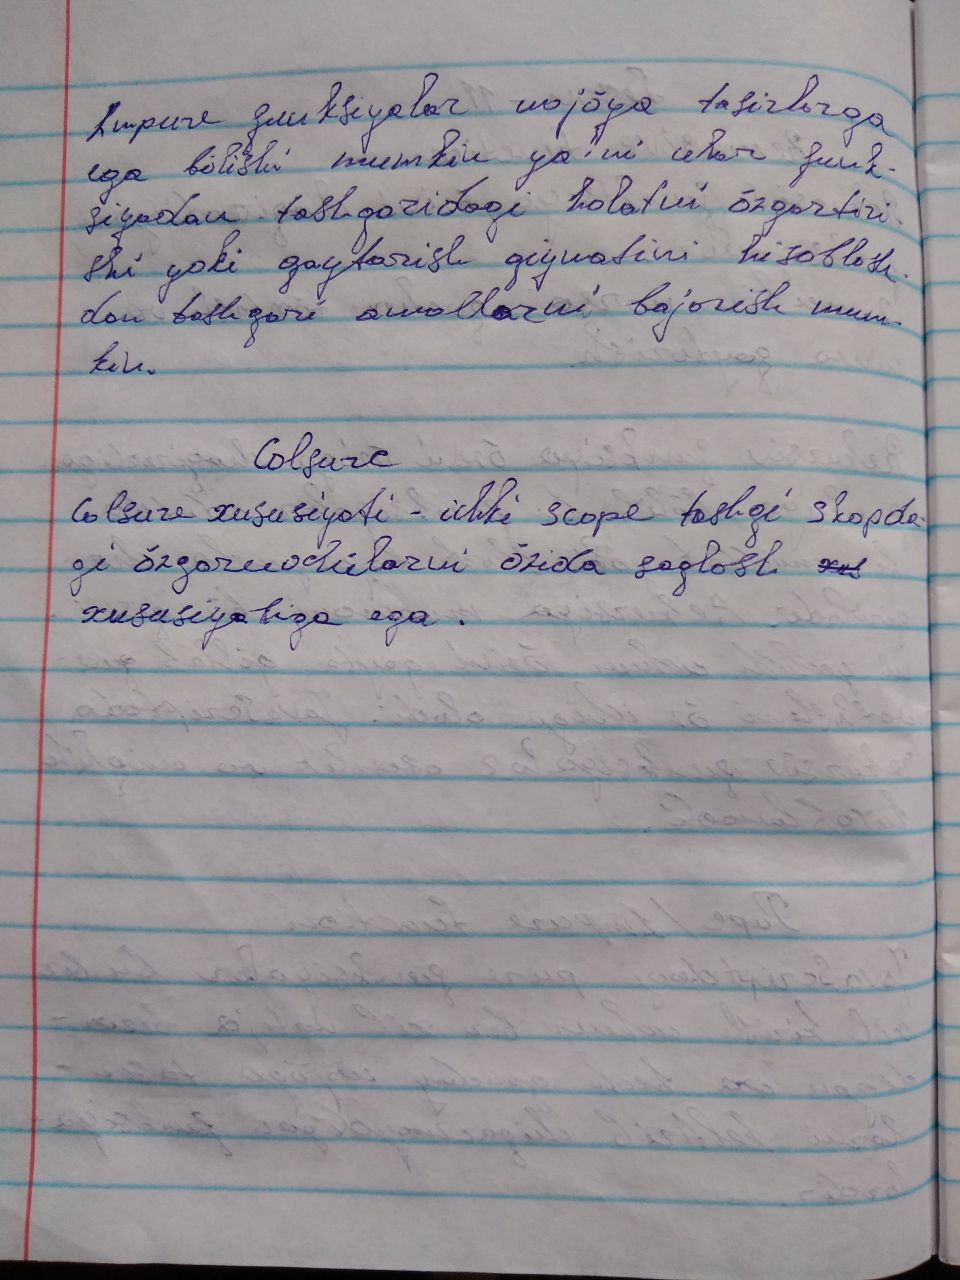 Impure funksiyalar nojõya tasirlarga
ega bõlishi mumkin ya'ni ular funk-
siyadan tashqaridagi holatni õzgartiri-
shi yoki qaytarish qiymatini hisoblash-
dan tashqari amallarni bajarish mum-
kin.
Colsure
Colsure xususiyati - ichki scope tashqi skopda-
gi õzgaruvchilarni õzida saqlash
xususiyatiga ega.